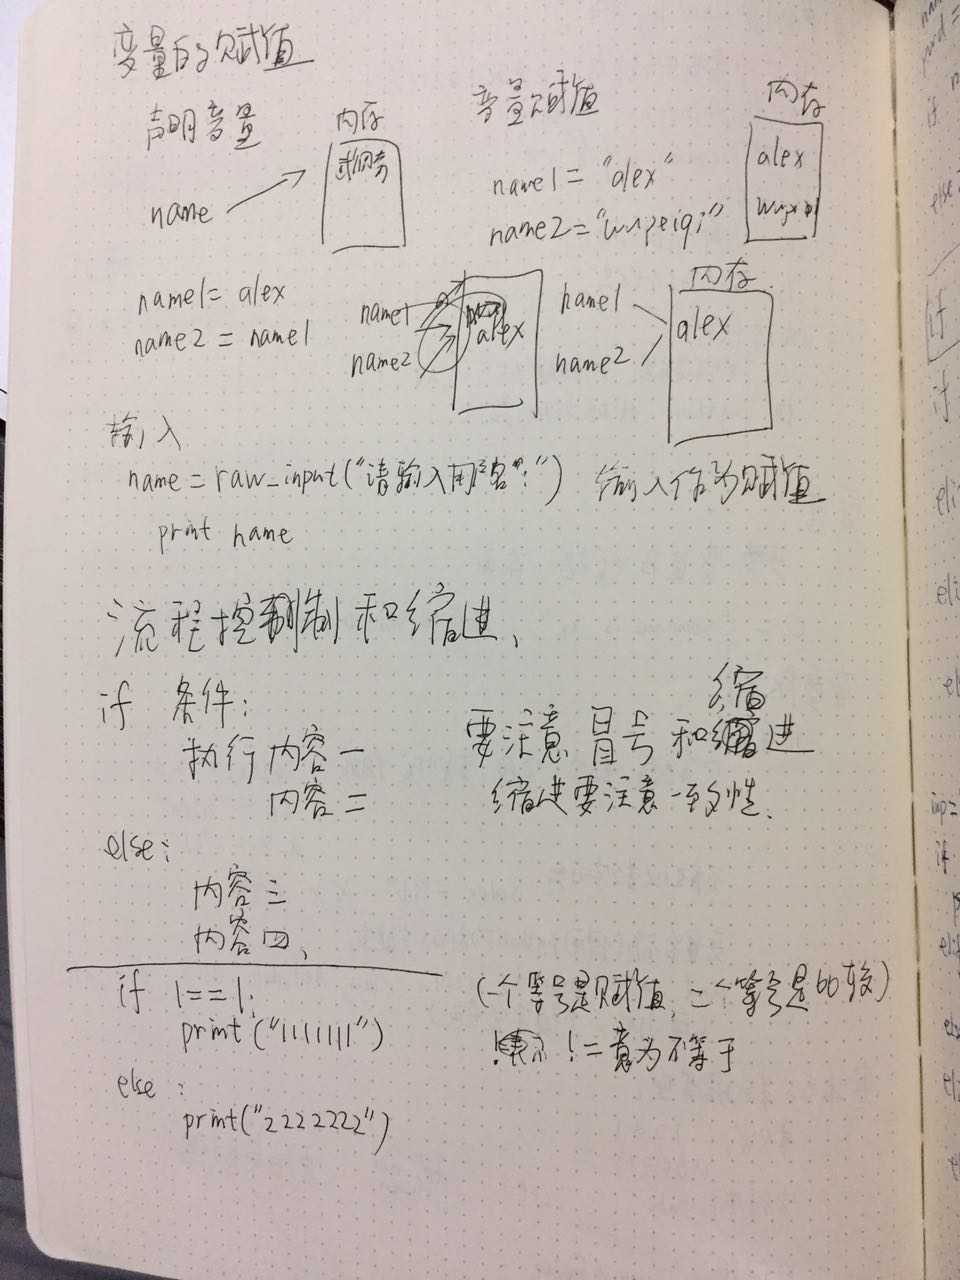 变量的赋值
声明音量
内存
name
音量赋值
name1 = "alex"
name2 = "wupeiqi"
内存
alex
name1 = alex
name2 = name1
name1
name2
alex
name1
name2
内存
alex
输入
name = raw_input("请输入用户名:") 输入作为赋值
print name
流程控制和缩进、
if 条件:
执行内容一
内容二
要注意冒号和缩进
缩进要注意一致性.
else:
内容三
内容四、
if 1==1:
print ("11111111")
else :
print("2222222")
(一个等号是赋值, 二个等号是比较)
!= 意为不等于